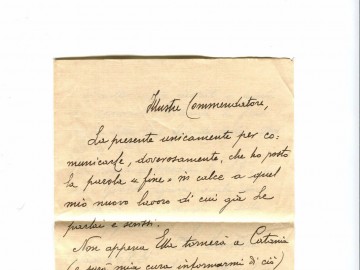 Illustre Commendatore,
La presente unicamente per co-
municarLe, doverosamente, che ho posto
la parola « fine » in calce a quel
mio nuovo lavoro di cui già Le
parlai e scritti.
Non appena Ella tornerà a Catania
(e sarà mia cura informarmi di ciò)